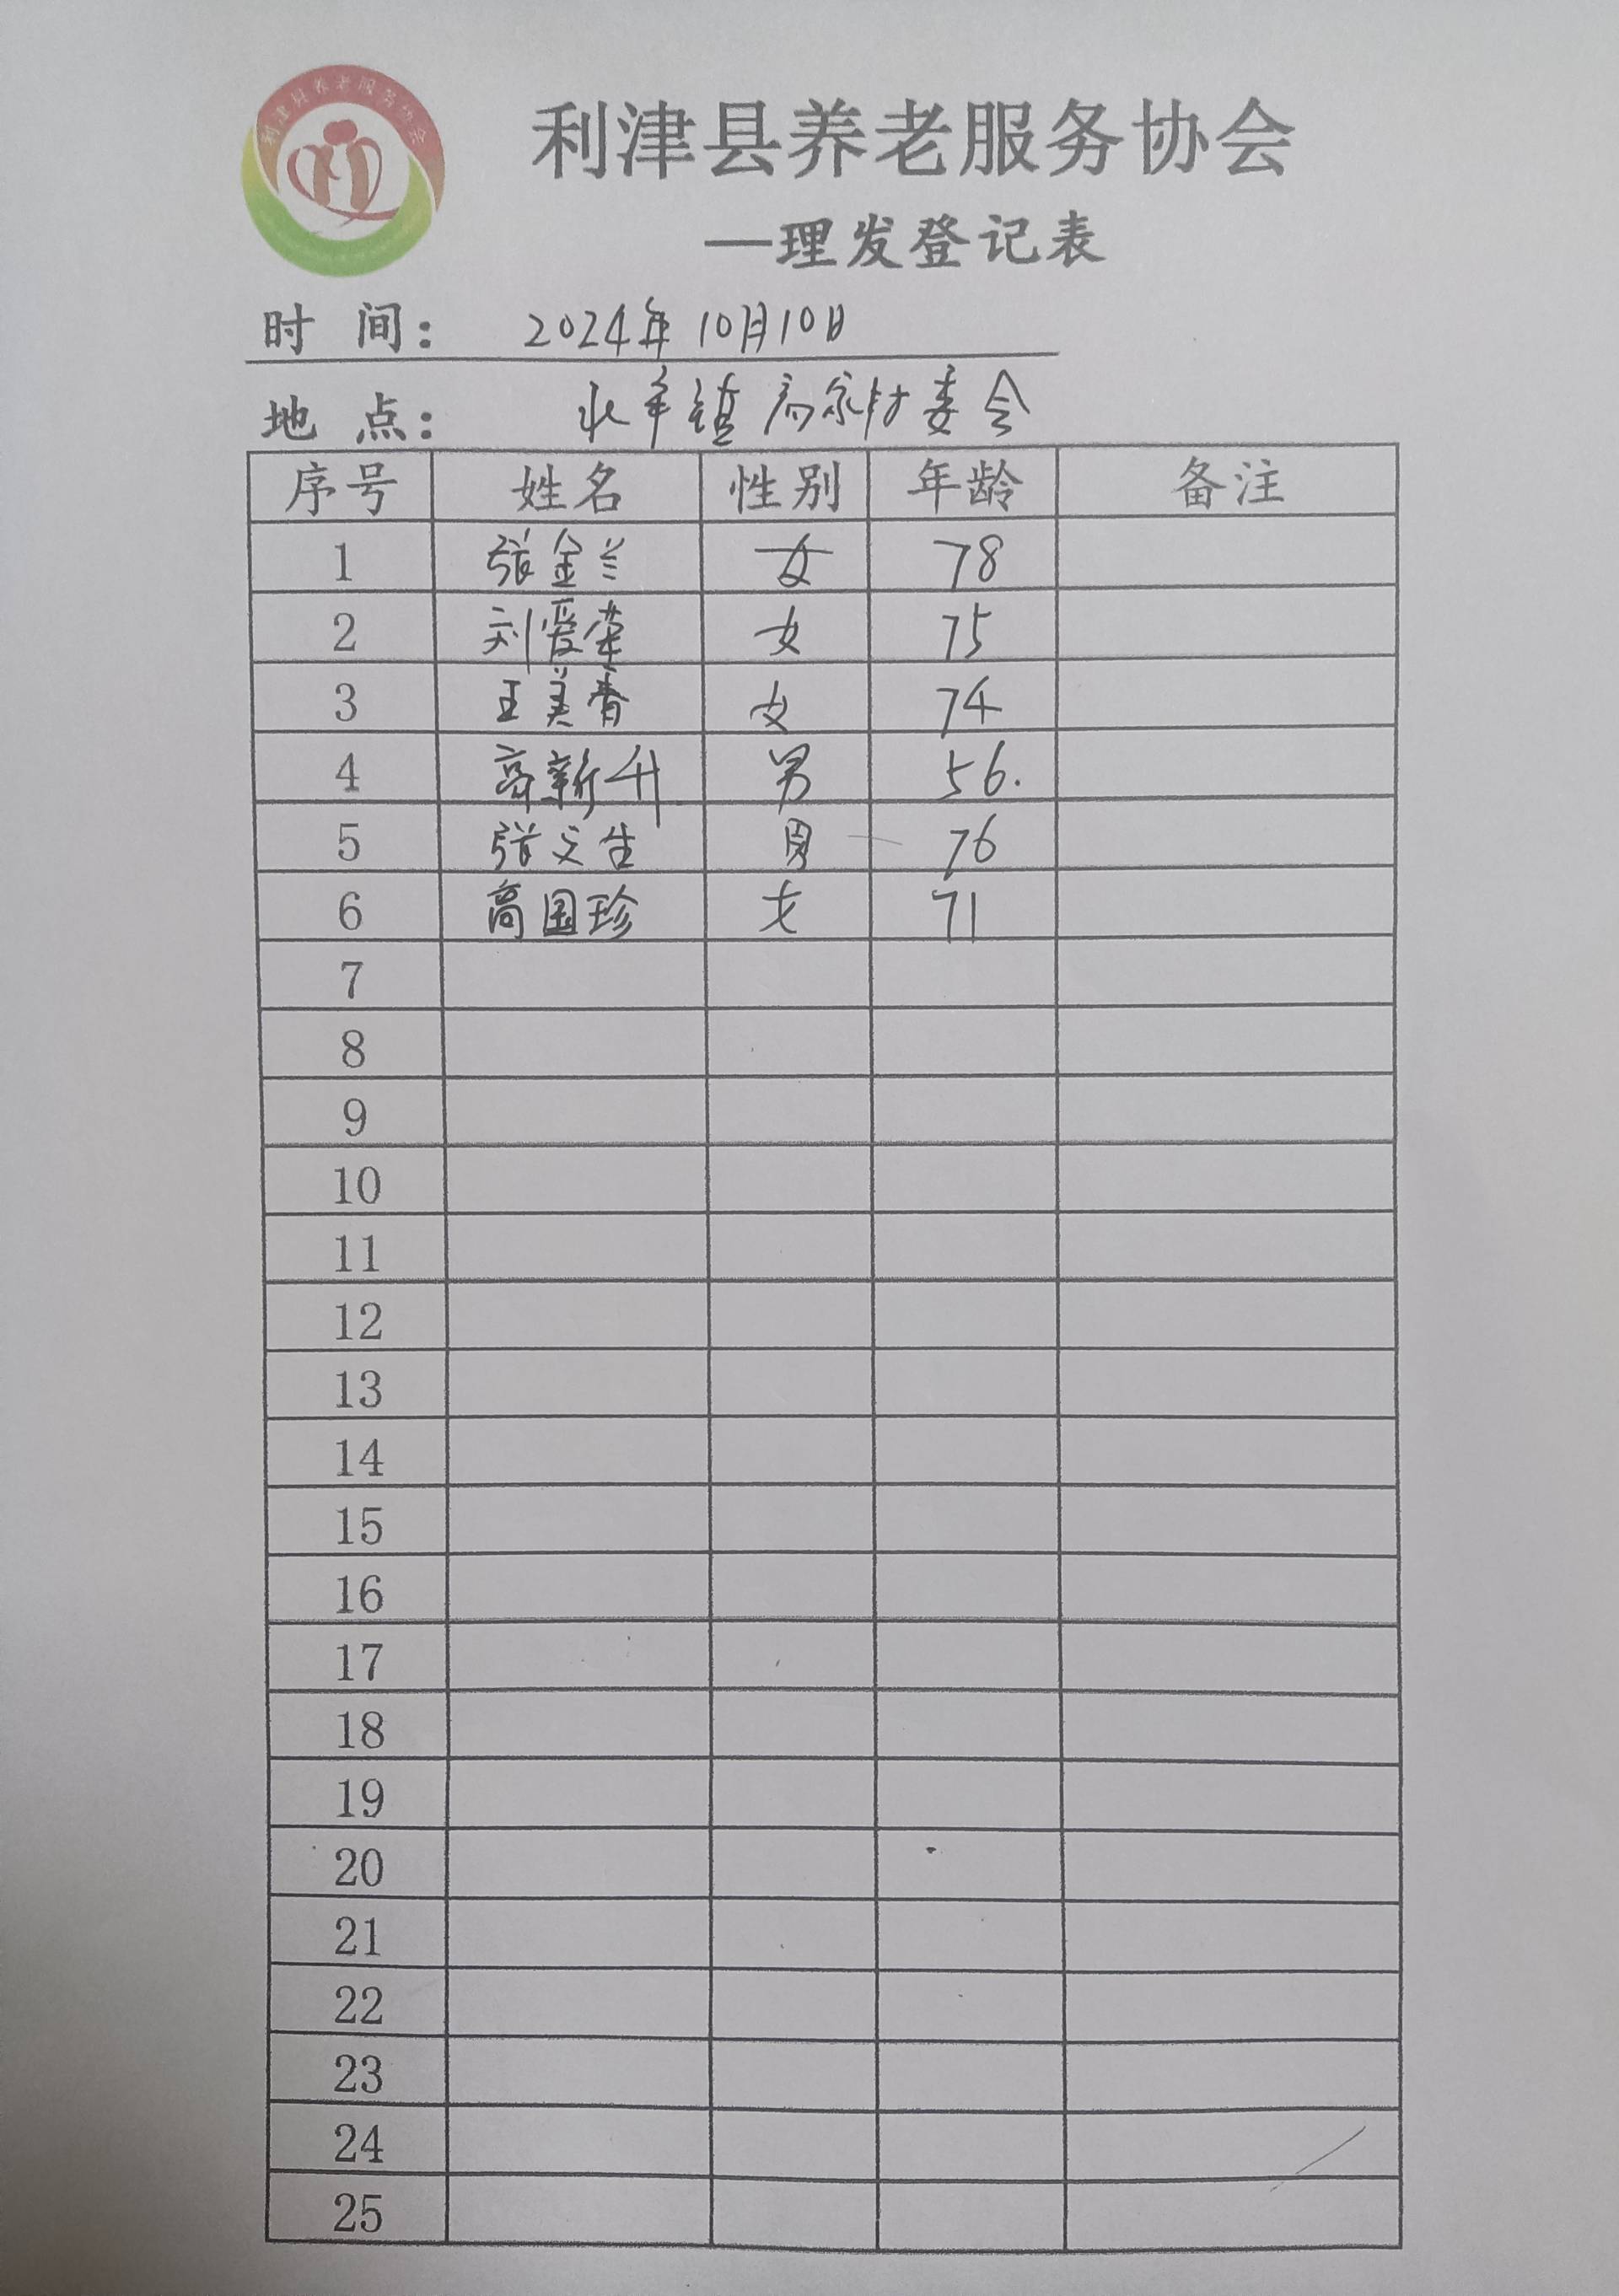 利津县养老服务协会
利津县养老服务协会
—理发登记表
时 间： 2024年10月10日
地 点： 北宋镇高家村委会
序号 姓名 性别 年龄 备注
1 张金兰 女 78
2 刘爱荣 女 75
3 王美香 女 74
4 高新升 男 56.
5 张文生 男 76
6 高国珍 女 71
7
8
9
10
11
12
13
14
15
16
17
18
19
20
21
22
23
24
25